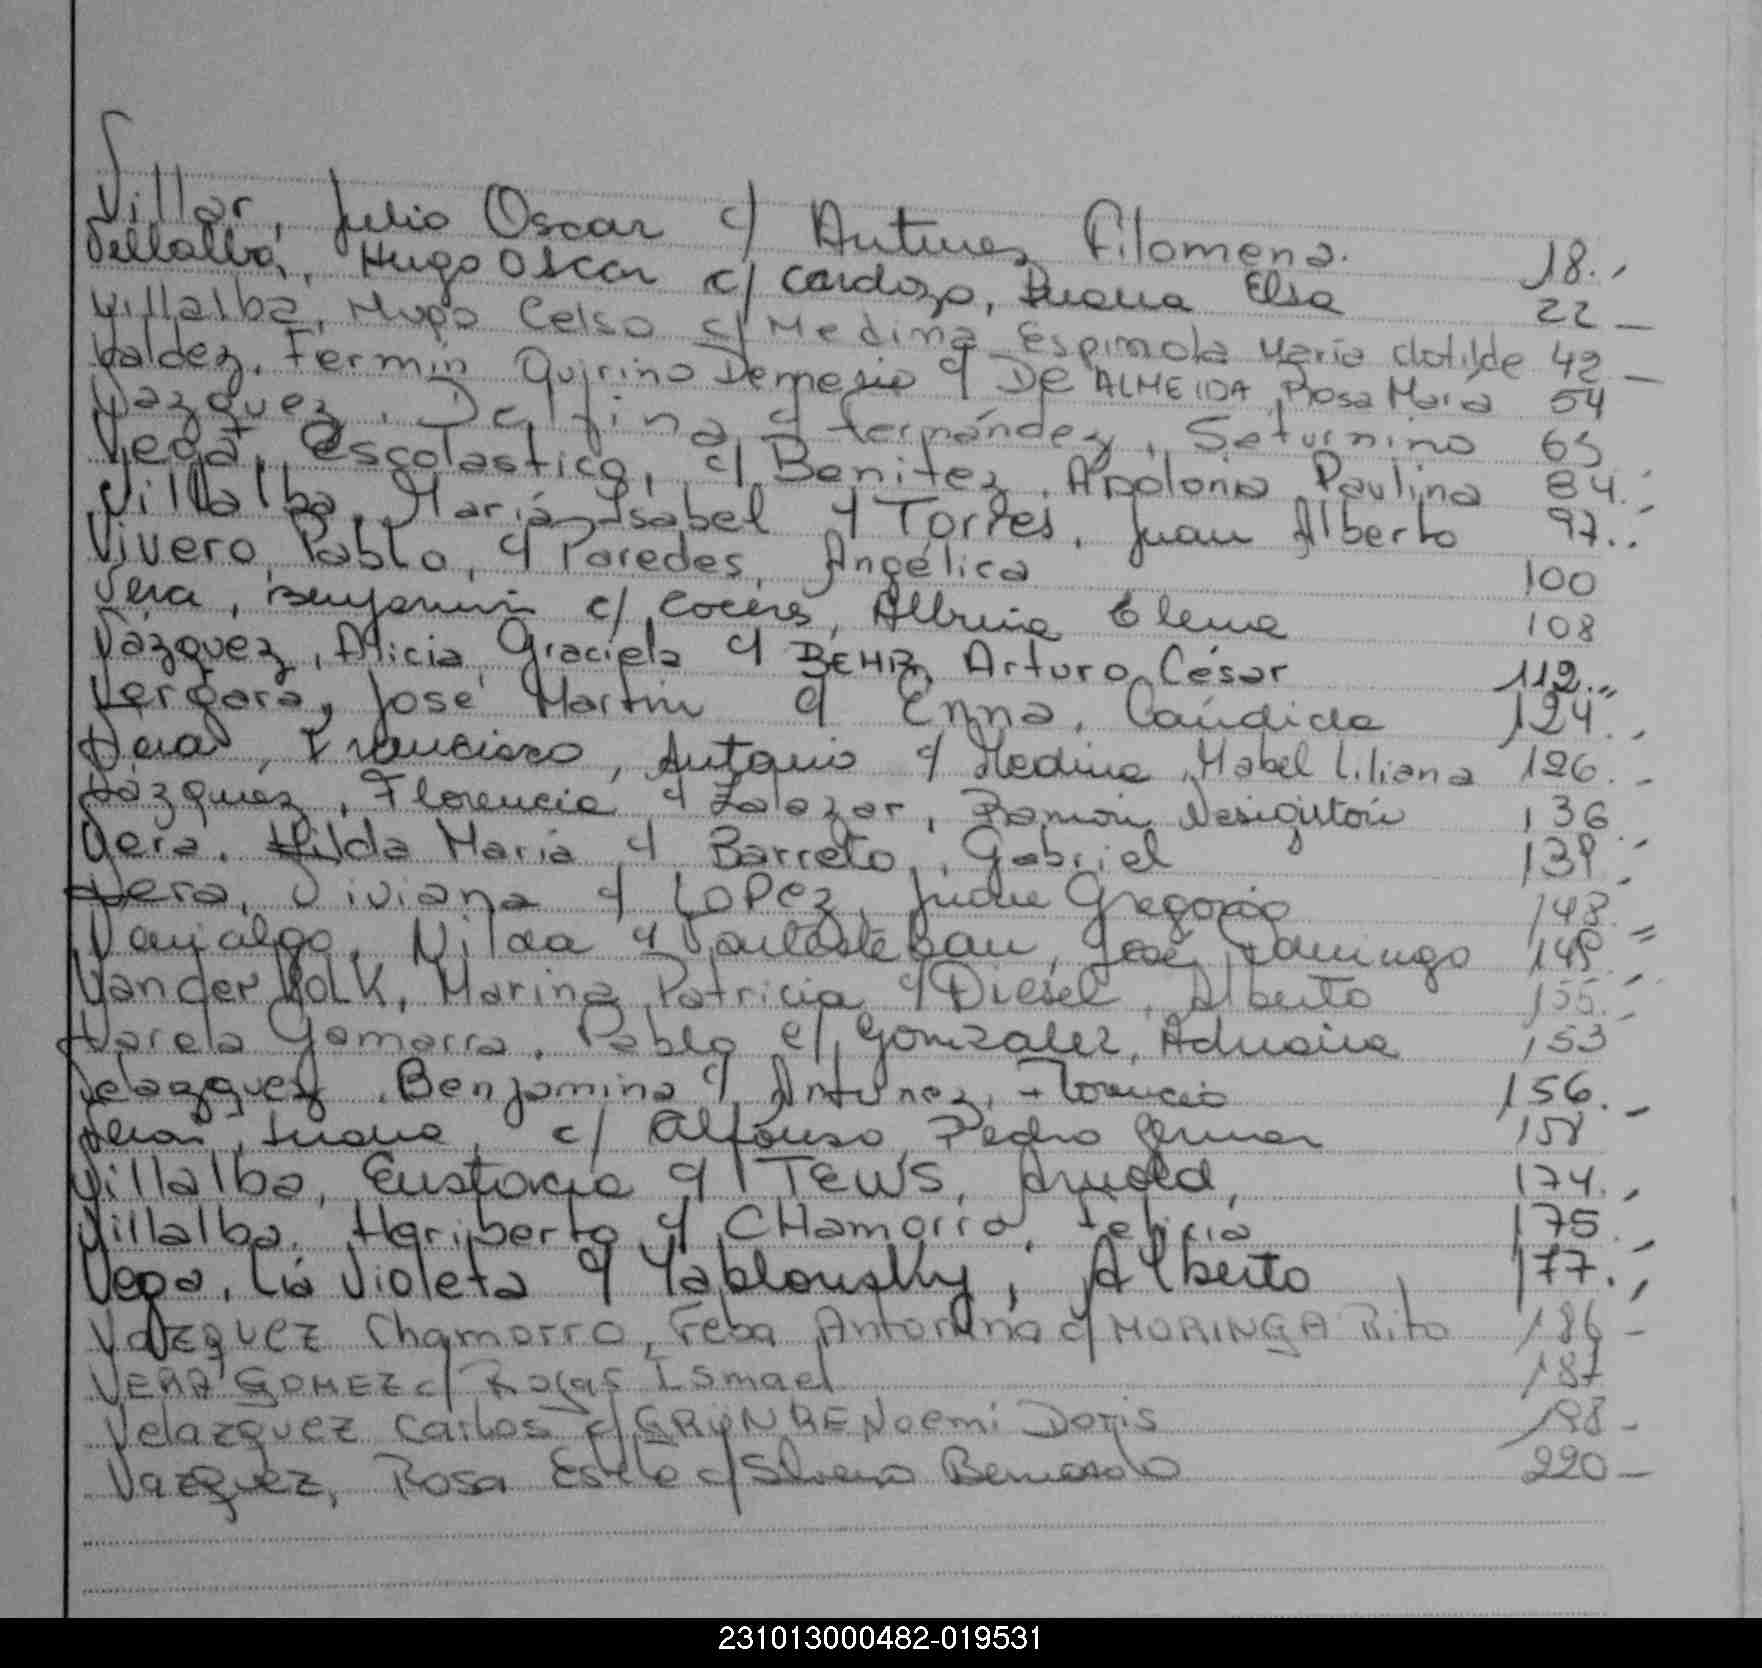 Villar, Julio Oscar c/ Antunez Filomena. 18.,
Villalba, Hugo Oscar c/ Cardozo, Juana Elsa 22 _
Villalba, Hugo Celso c/ Medina Espinola Maria Clotilde 42 _
Valdez, Fermin Quirino Demesio c/ DE ALMEIDA, Rosa Maria 54
Vazquez, Delfina c/ Fernández, Saturnino 65
Vega, Escolastico, c/ Benitez, Apolonia Paulina 84.
Villalba, María Isabel c/ Torres, Juan Alberto 97..
Vivero, Pablo, c/ Paredes, Angélica 100
Vera, Benjamin c/ Albina Elena 108
Vázquez, Alicia Graciela c/ BEHR, Arturo César 112.,,
Vergara, José Martin c/ Enna, Cándida 124.,
Vera, Francisco, Antonio c/ Medina, Mabel Liliana 126.-
Vázquez, Florencia c/ Zalazar, Ramón 136
Vera, Hilda María c/ Barreto, Gabriel 139.
Vera, Viviana c/ LOPEZ, Juan Gregorio 148.
Nilda c/ José Domingo 149.
Vander Marina Patricia c/ Diesel, Alberto 155.
Varela Gamarra, Pablo c/ Gonzalez, Adriana 153
Velazquez, Benjamina c/ Antunez, Florencio 156.-
Vera, Juana, c/ Alfonso, Pedro 158
Villalba, Eustacia c/ TEWS, Arnold, 174.,
Villalba, Heriberto c/ CHamorro, Felicia 175.
Vega, Lia Violeta c/ Yablonsky, Alberto 177.,
Vazquez Chamorro, Feba Antonina c/ MORINGA Rito 186 -
VERA GOMEZ c/ Rojas Ismael 187
Velazquez Carlos c/ Noemi Doris 198 -
Vazquez, Rosa Estela c/ Bernardo 220 -
231013000482-019531